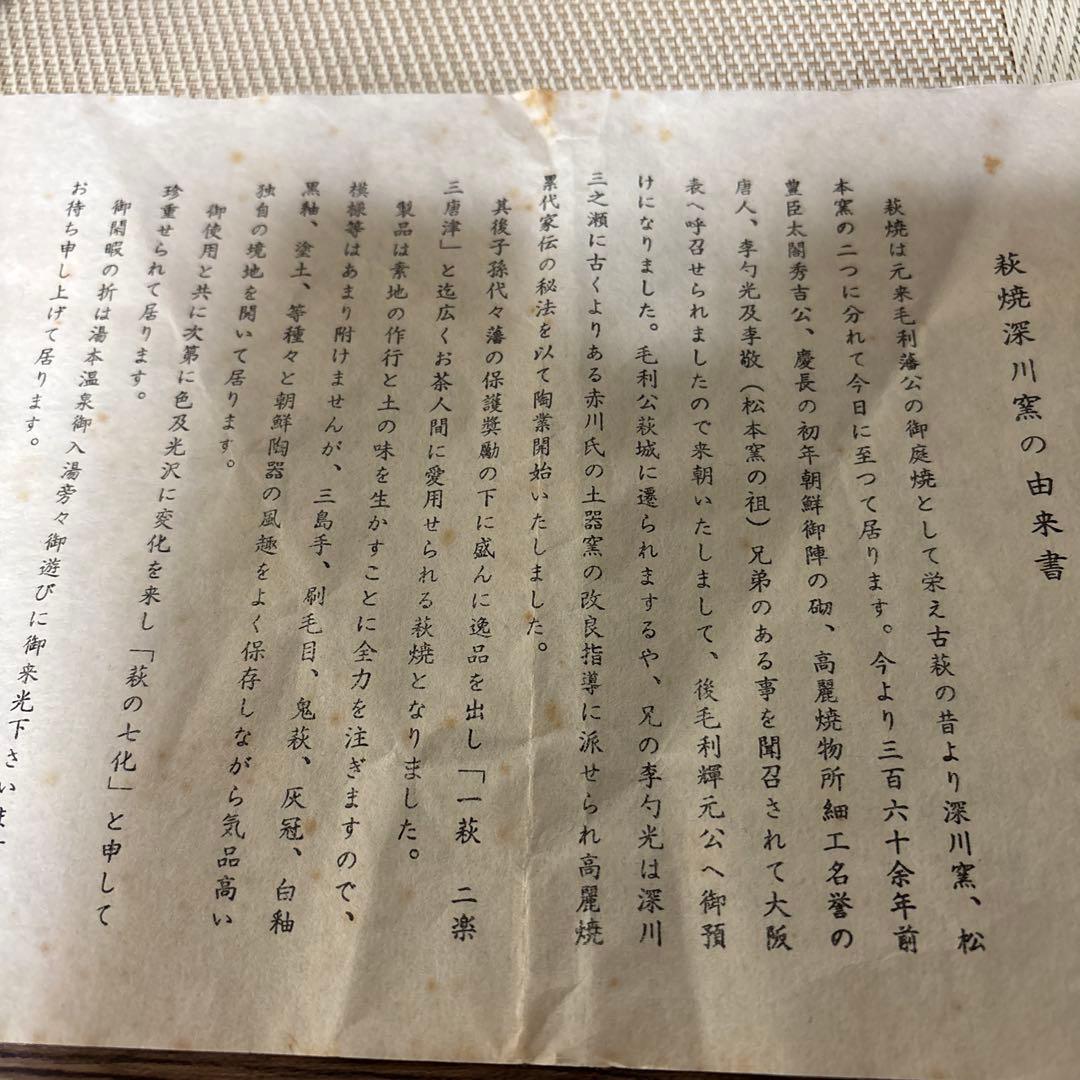 萩焼深川窯の由来書
萩焼は元来毛利藩公の御庭焼として栄え古萩の昔より深川窯、松
本窯の二つに分れて今日に至つて居ります。今より三百六十余年前
豊臣太閤秀吉公、慶長の初年朝鮮御陣の砌、高麗焼物所細工名誉の
唐人、李勺光及李敬(松本窯の祖)兄弟のある事を聞召されて大阪
表へ呼召せられましたので来朝いたしまして、後毛利輝元公へ御預
けになりました。毛利公萩城に遷られまするや、兄の李勺光は深川
三之瀬に古くよりある赤川氏の土器窯の改良指導に派せられ高麗焼
累代家伝の秘法を以て陶業開始いたしました。
其後子孫代々藩の保護獎勵の下に盛んに逸品を出し「一萩 二楽
三唐津」と迄広くお茶人間に愛用せられる萩焼となりました。
製品は素地の作行と土の味を生かすことに全力を注ぎますので、
模様等はあまり附けませんが、三島手、刷毛目、鬼萩、灰冠、白釉
黒釉、塗土、等種々と朝鮮陶器の風趣をよく保存しながら気品高い
独自の境地を開いて居ります。
御使用と共に次第に色及光沢に変化を来し「萩の七化」と申して
珍重せられて居ります。
御閑暇の折は湯本温泉御入湯旁々御遊びに御来光下さいま
お待ち申し上げて居ります。